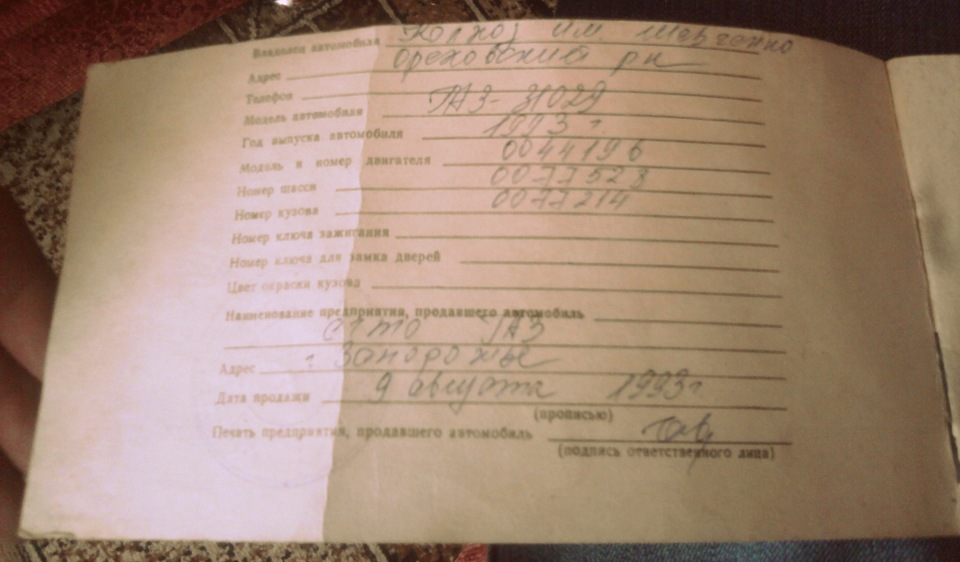 Владелец автомобиля Колхоз им Шевченко
Адрес Ореховский рн
Телефон
Модель автомобиля ГАЗ-31029
Год выпуска автомобиля 1993 г.
Модель и номер двигателя 0044196
Номер шасси 0077528
Номер кузова 0077214
Номер ключа зажигания
Номер ключа для замка дверей
Цвет окраски кузова
Наименование предприятия, продавшего автомобиль
СТТО ГАЗ
Адрес г. Запорожье
Дата продажи 9 августа 1993г.
(прописью)
Печать предприятия, продавшего автомобиль
(подпись ответственного лица)